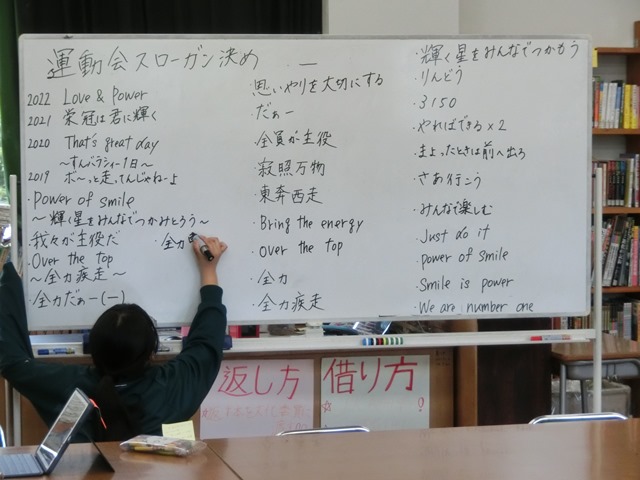 運動会スローガン決め
2022 Love & Power
2021 栄冠は君に輝く
2020 That's great day
～すんばラシィー1日～
2019 ボーっと走ってんじゃねーよ
・Power of smile
～輝く星をみんなでつかみとろう～
・我々が主役だ
・全力
・Over the top
～全力疾走～
・全力だぁー(一)
思いやりを大切にする
・だぁー
・全員が主役
・寂照万物
・東奔西走
・Bring the energy
・over the top
・全力
・全力疾走
・輝く星をみんなでつかもう
・りんどう
・3150
・やればできる×2
・まよったときは前へ出ろ
・さあ行こう
・みんなで楽しむ
・Just do it
・power of smile
・Smile is power
・We are number one
返し方
借り方